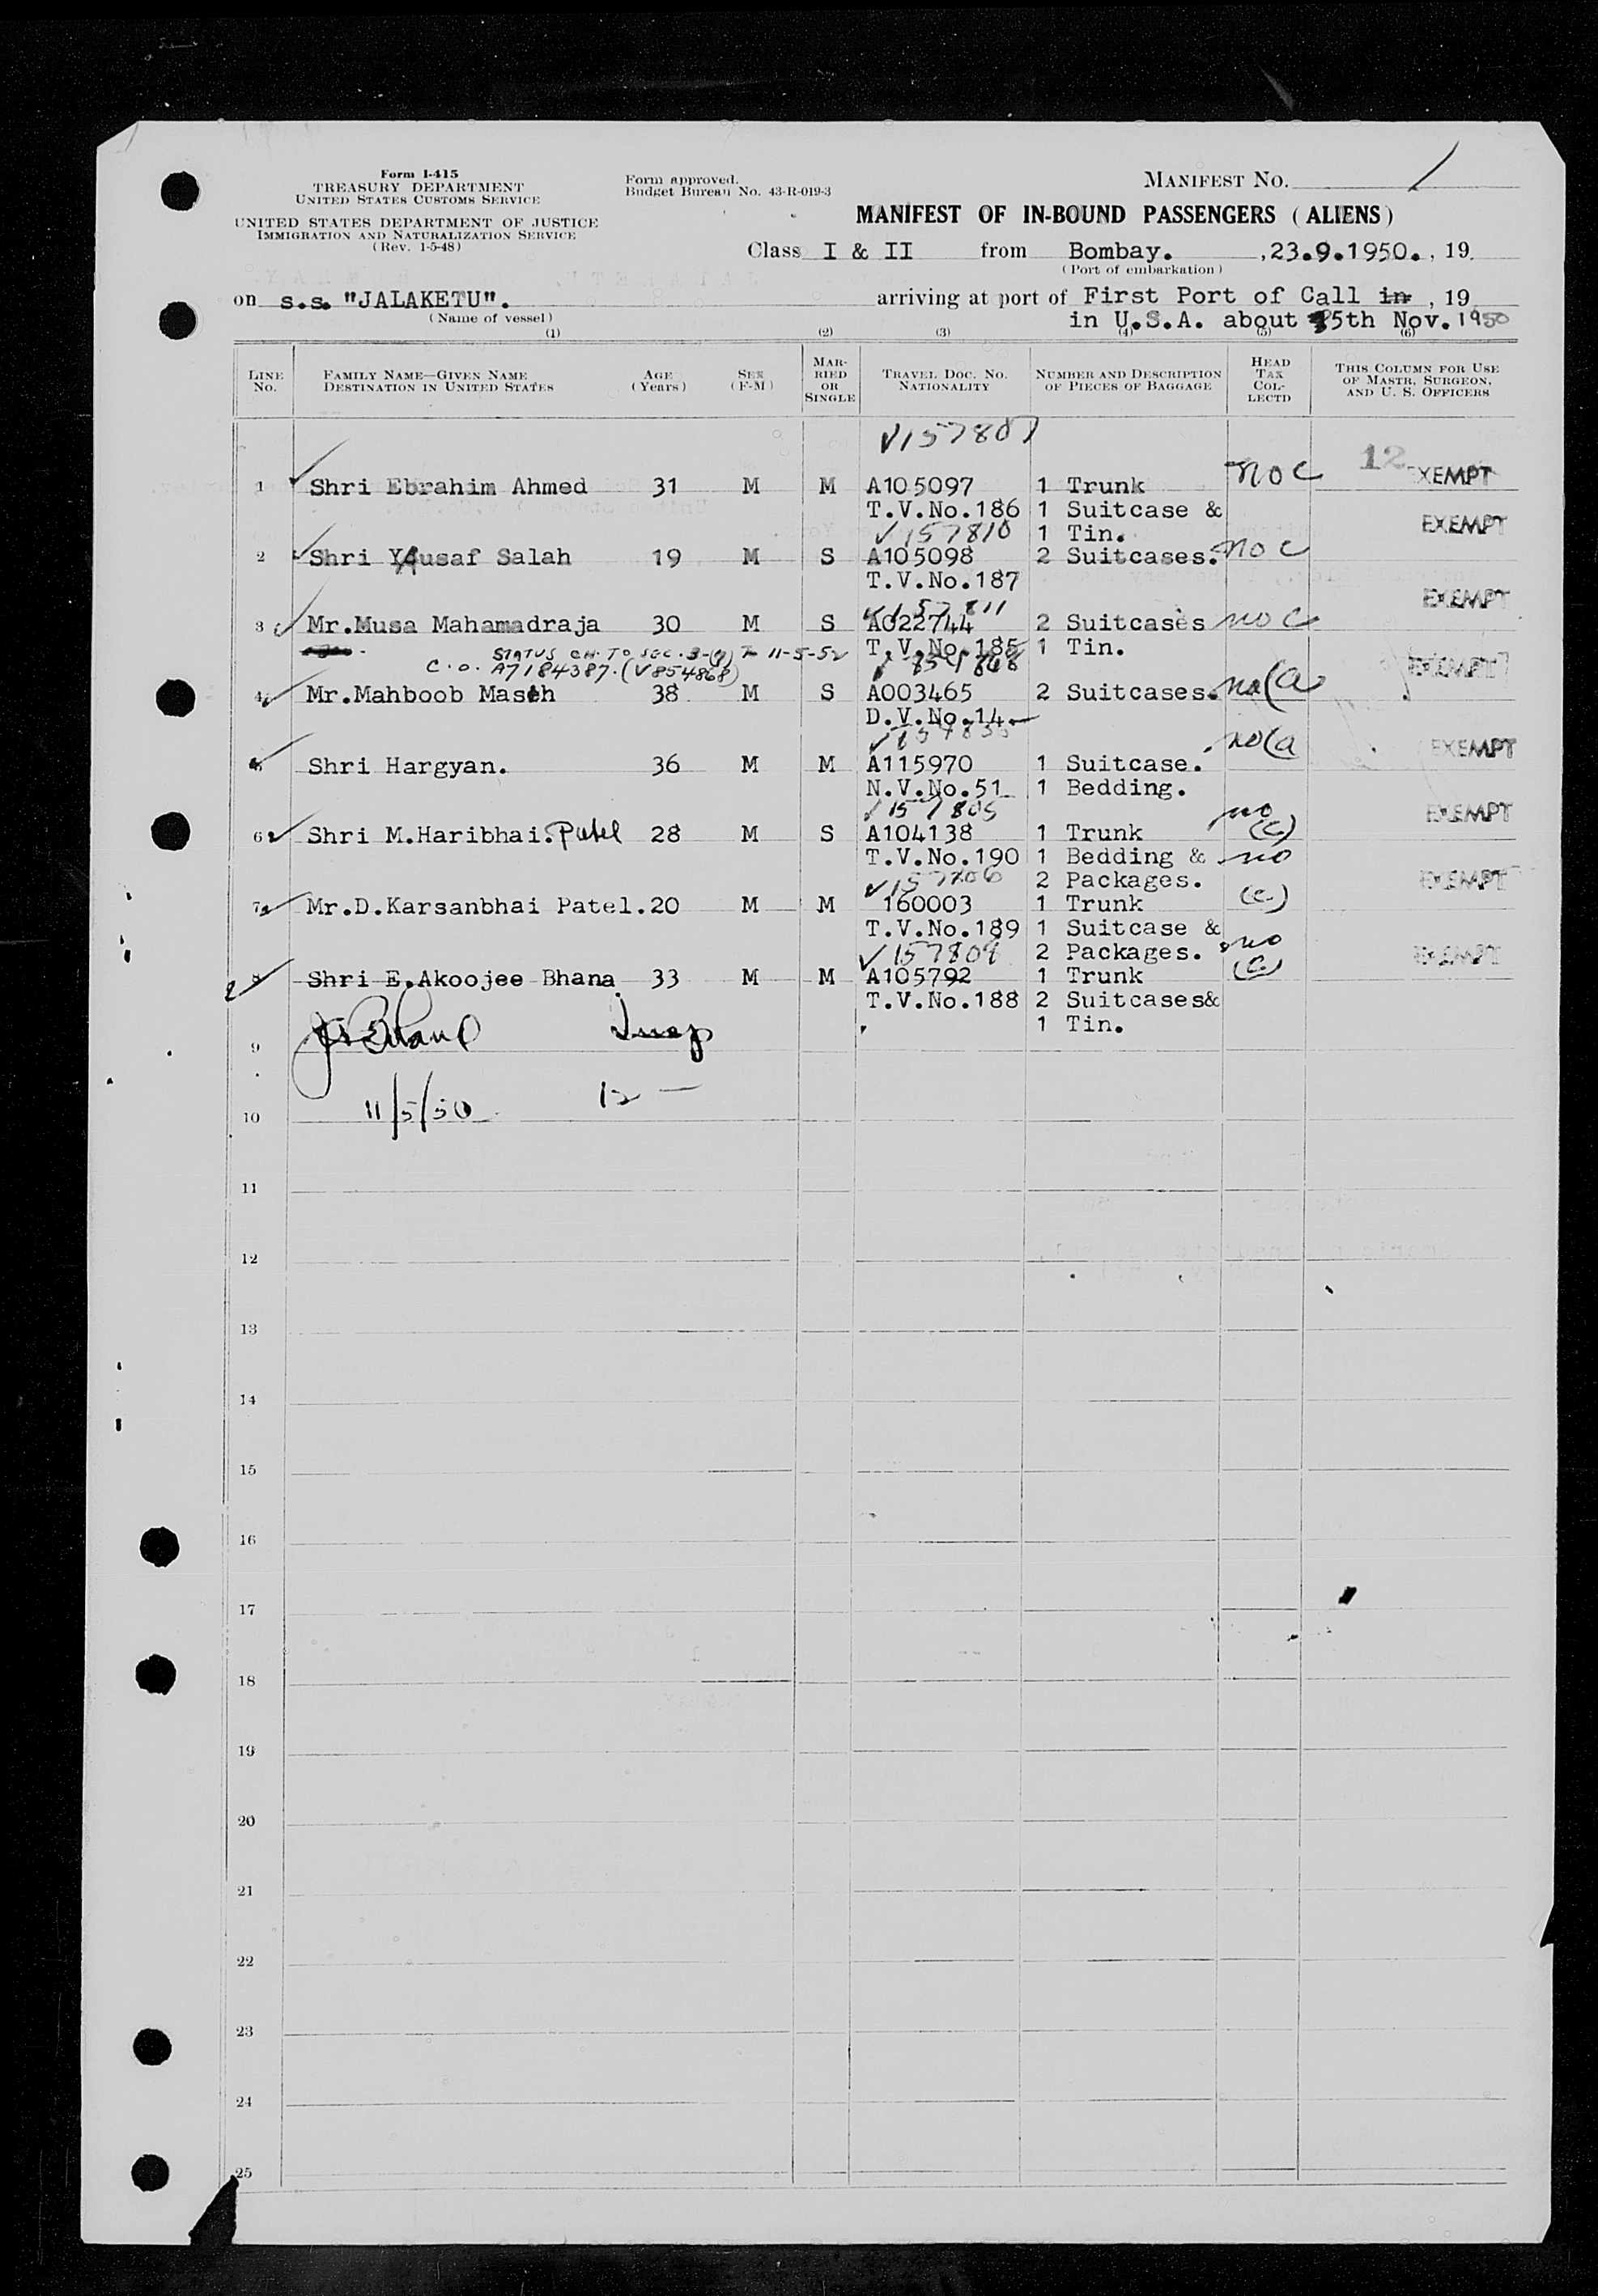 Form I-415
TREASURY DEPARTMENT
UNITED STATES CUSTOMS SERVICE
UNITED STATES DEPARTMENT OF JUSTICE
IMMIGRATION AND NATURALIZATION SERVICE
(Rev. 1-5-48)
Form approved.
Budget Bureau No. 43-R-019-3
MANIFEST NO. 1
MANIFEST OF IN-BOUND PASSENGERS (ALIENS)
Class I & II from Bombay. ,23.9.1950. , 19
(Port of embarkation)
on s.s. "JALAKETU". arriving at port of First Port of Call in , 19
(Name of vessel) in U.S.A. about 5th Nov. 1950
(1) (2) (3) (4) (5) (6)
LINE NO. FAMILY NAME—GIVEN NAME DESTINATION IN UNITED STATES AGE (Years) SEX (F-M) MARRIED OR SINGLE TRAVEL DOC. NO. NATIONALITY NUMBER AND DESCRIPTION OF PIECES OF BAGGAGE HEAD TAX COLLECTD THIS COLUMN FOR USE OF MASTR, SURGEON, AND U. S. OFFICERS
V157807
12
1 Shri Ebrahim Ahmed 31 M M A105097 1 Trunk no C EXEMPT
T.V.No.186 1 Suitcase &
V157810 1 Tin. EXEMPT
2 Shri Yausaf Salah 19 M S A105098 2 Suitcases. no C
T.V.No.187
V157811 EXEMPT
3 Mr.Musa Mahamadraja 30 M S A022744 2 Suitcases no C
T.V.No.185 1 Tin.
STATUS CH. TO SEC. 3-( ) 11-5-52
C.O. A7184387. (V854868) V854868 EXEMPT
4 Mr.Mahboob Masih 38 M S A003465 2 Suitcases. no (a
D.V.No.14.
5 Shri Hargyan. 36 M M A115970 1 Suitcase. no (a EXEMPT
N.V.No.51 1 Bedding.
V157805 EXEMPT
6 Shri M.Haribhai. Patel 28 M S A104138 1 Trunk no (c)
T.V.No.190 1 Bedding &
V157806 2 Packages. EXEMPT
7 Mr.D.Karsanbhai Patel. 20 M M 160003 1 Trunk no (c)
T.V.No.189 1 Suitcase &
V157809 2 Packages. EXEMPT
8 Shri E.Akoojee Bhana 33 M M A105792 1 Trunk no (c)
T.V.No.188 2 Suitcases&
1 Tin.
Insp
9
11/5/50 12 —
10
11
12
13
14
15
16
17
18
19
20
21
22
23
24
25